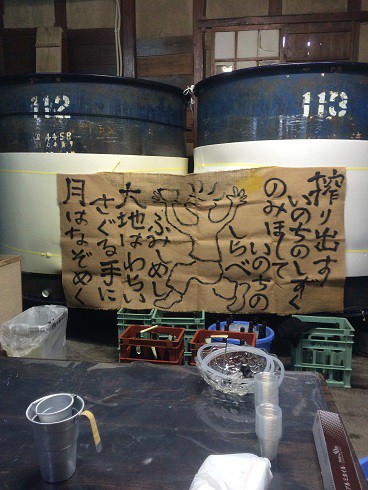 112
113
搾り出す
いのちのしずく
のみほして
いのちの
しらべ
ふみしめし
大地はわらい
さぐる手に
月はなぞめく